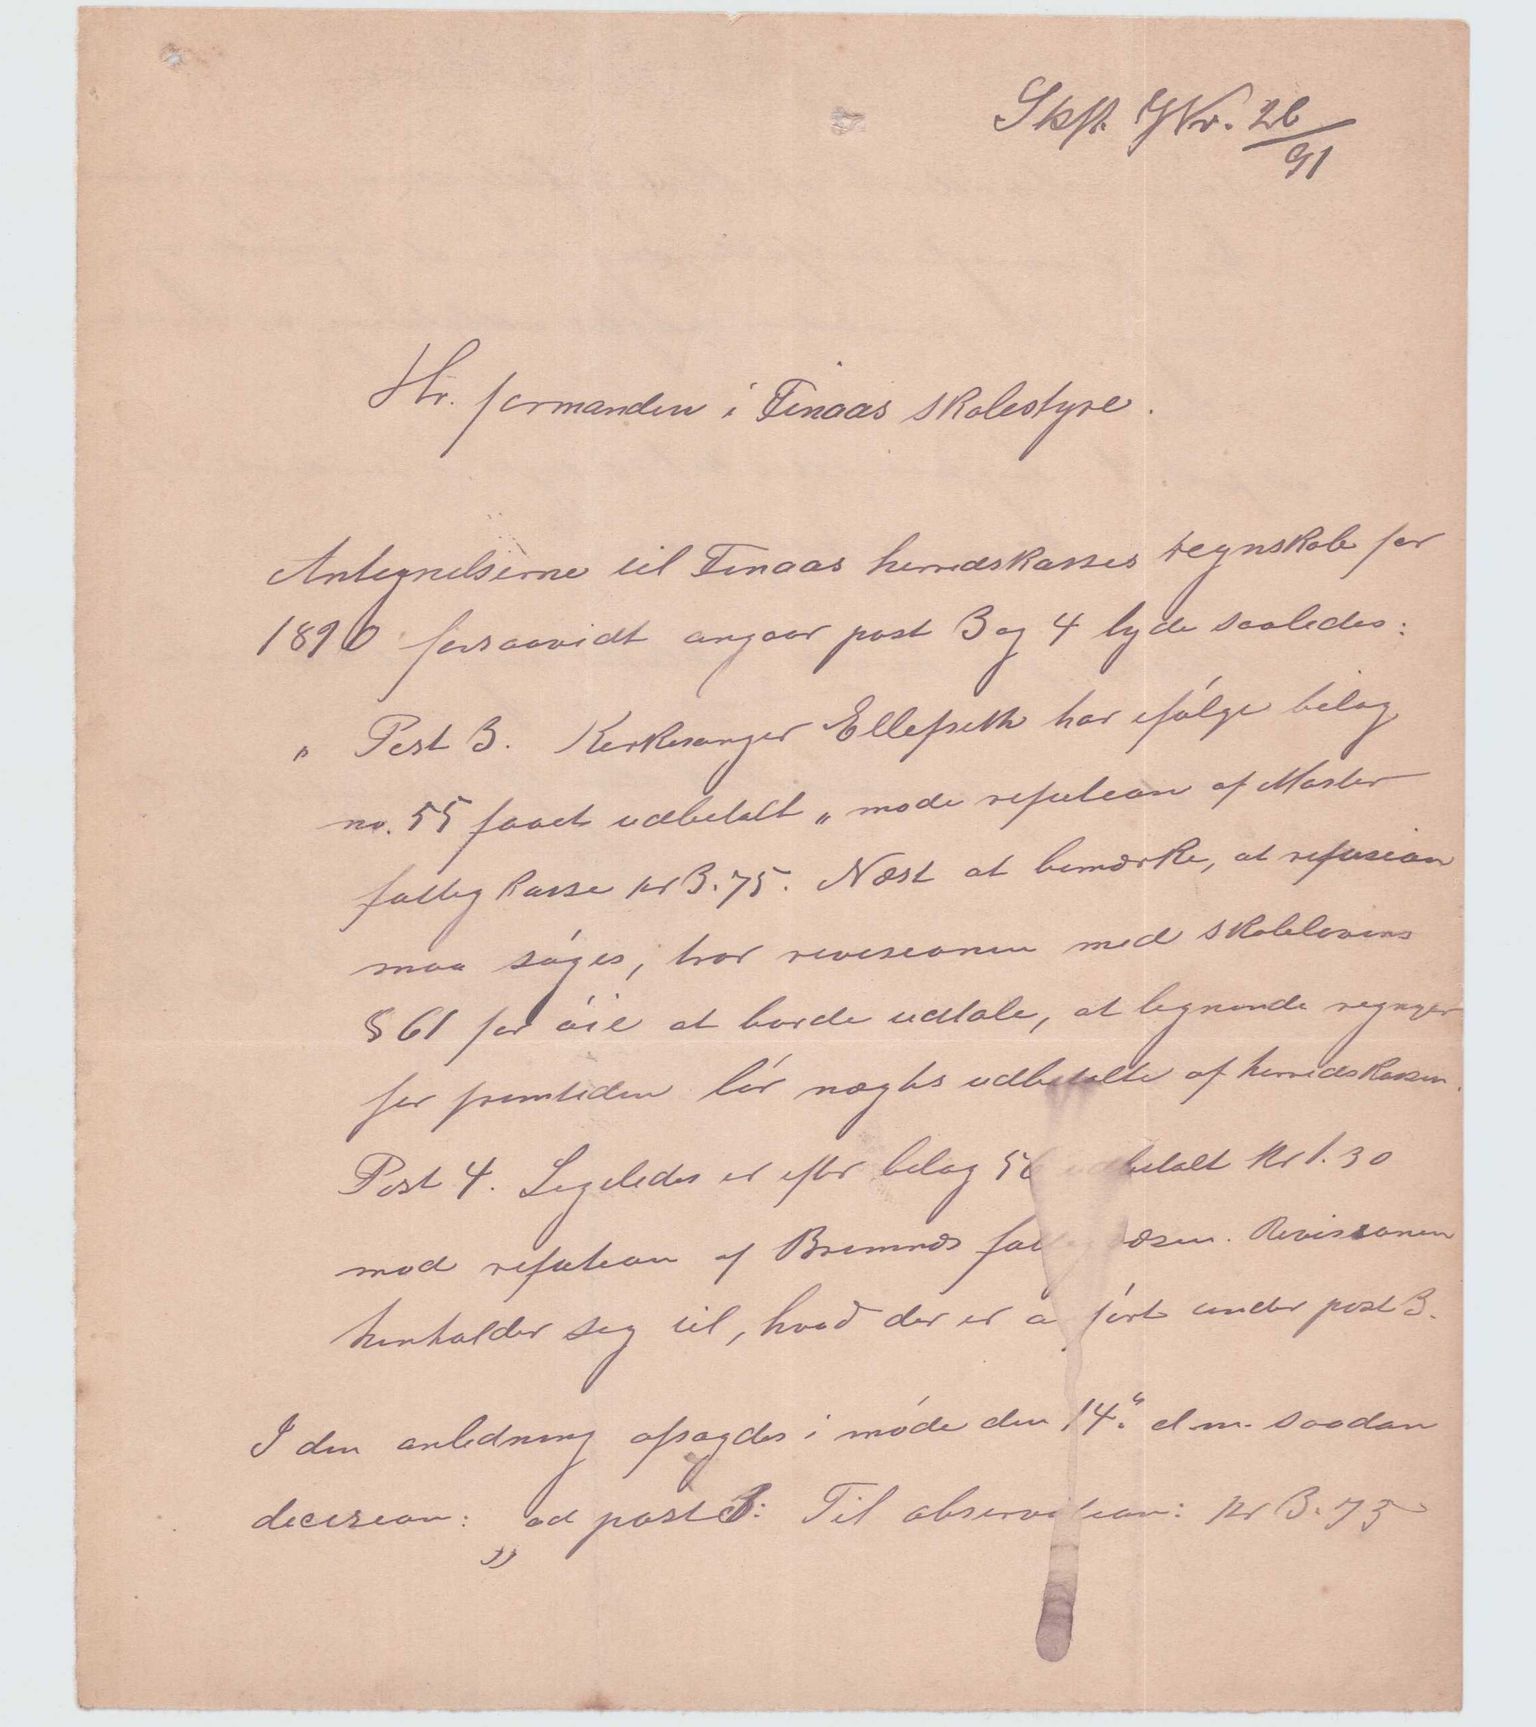 Skst. JNr. 26/91
Hr. formanden i Finaas skolestyre.
Antegnelserne til Finaas herredskasses regnskab for
1890 forsaavidt angaar post 3 og 4 lyde saaledes:
" Post 3. Kirkesanger Ellefseth har ifølge bilag
no. 55 faaet udbetalt „ mode refusion af Moster
fattigkasse kr 3.75. Næst at bemærke, at refusion
maa søges, tror revisionen med skolelovens
§ 61 for øie at burde udtale, at lignende regnger
for fremtiden bør nægtes udbetalte af herredskassen.
Post 4. Ligeledes er efter bilag 56 udbetalt kr 1.30
mod refusion af Bremnæs fattigvæsen. Revisionen
henholder sig til, hvad der er anført under post 3.
I den anledning afsagdes i møde den 14. d.m. saadan
decision: „ ad post 3: Til observation: kr 3.75